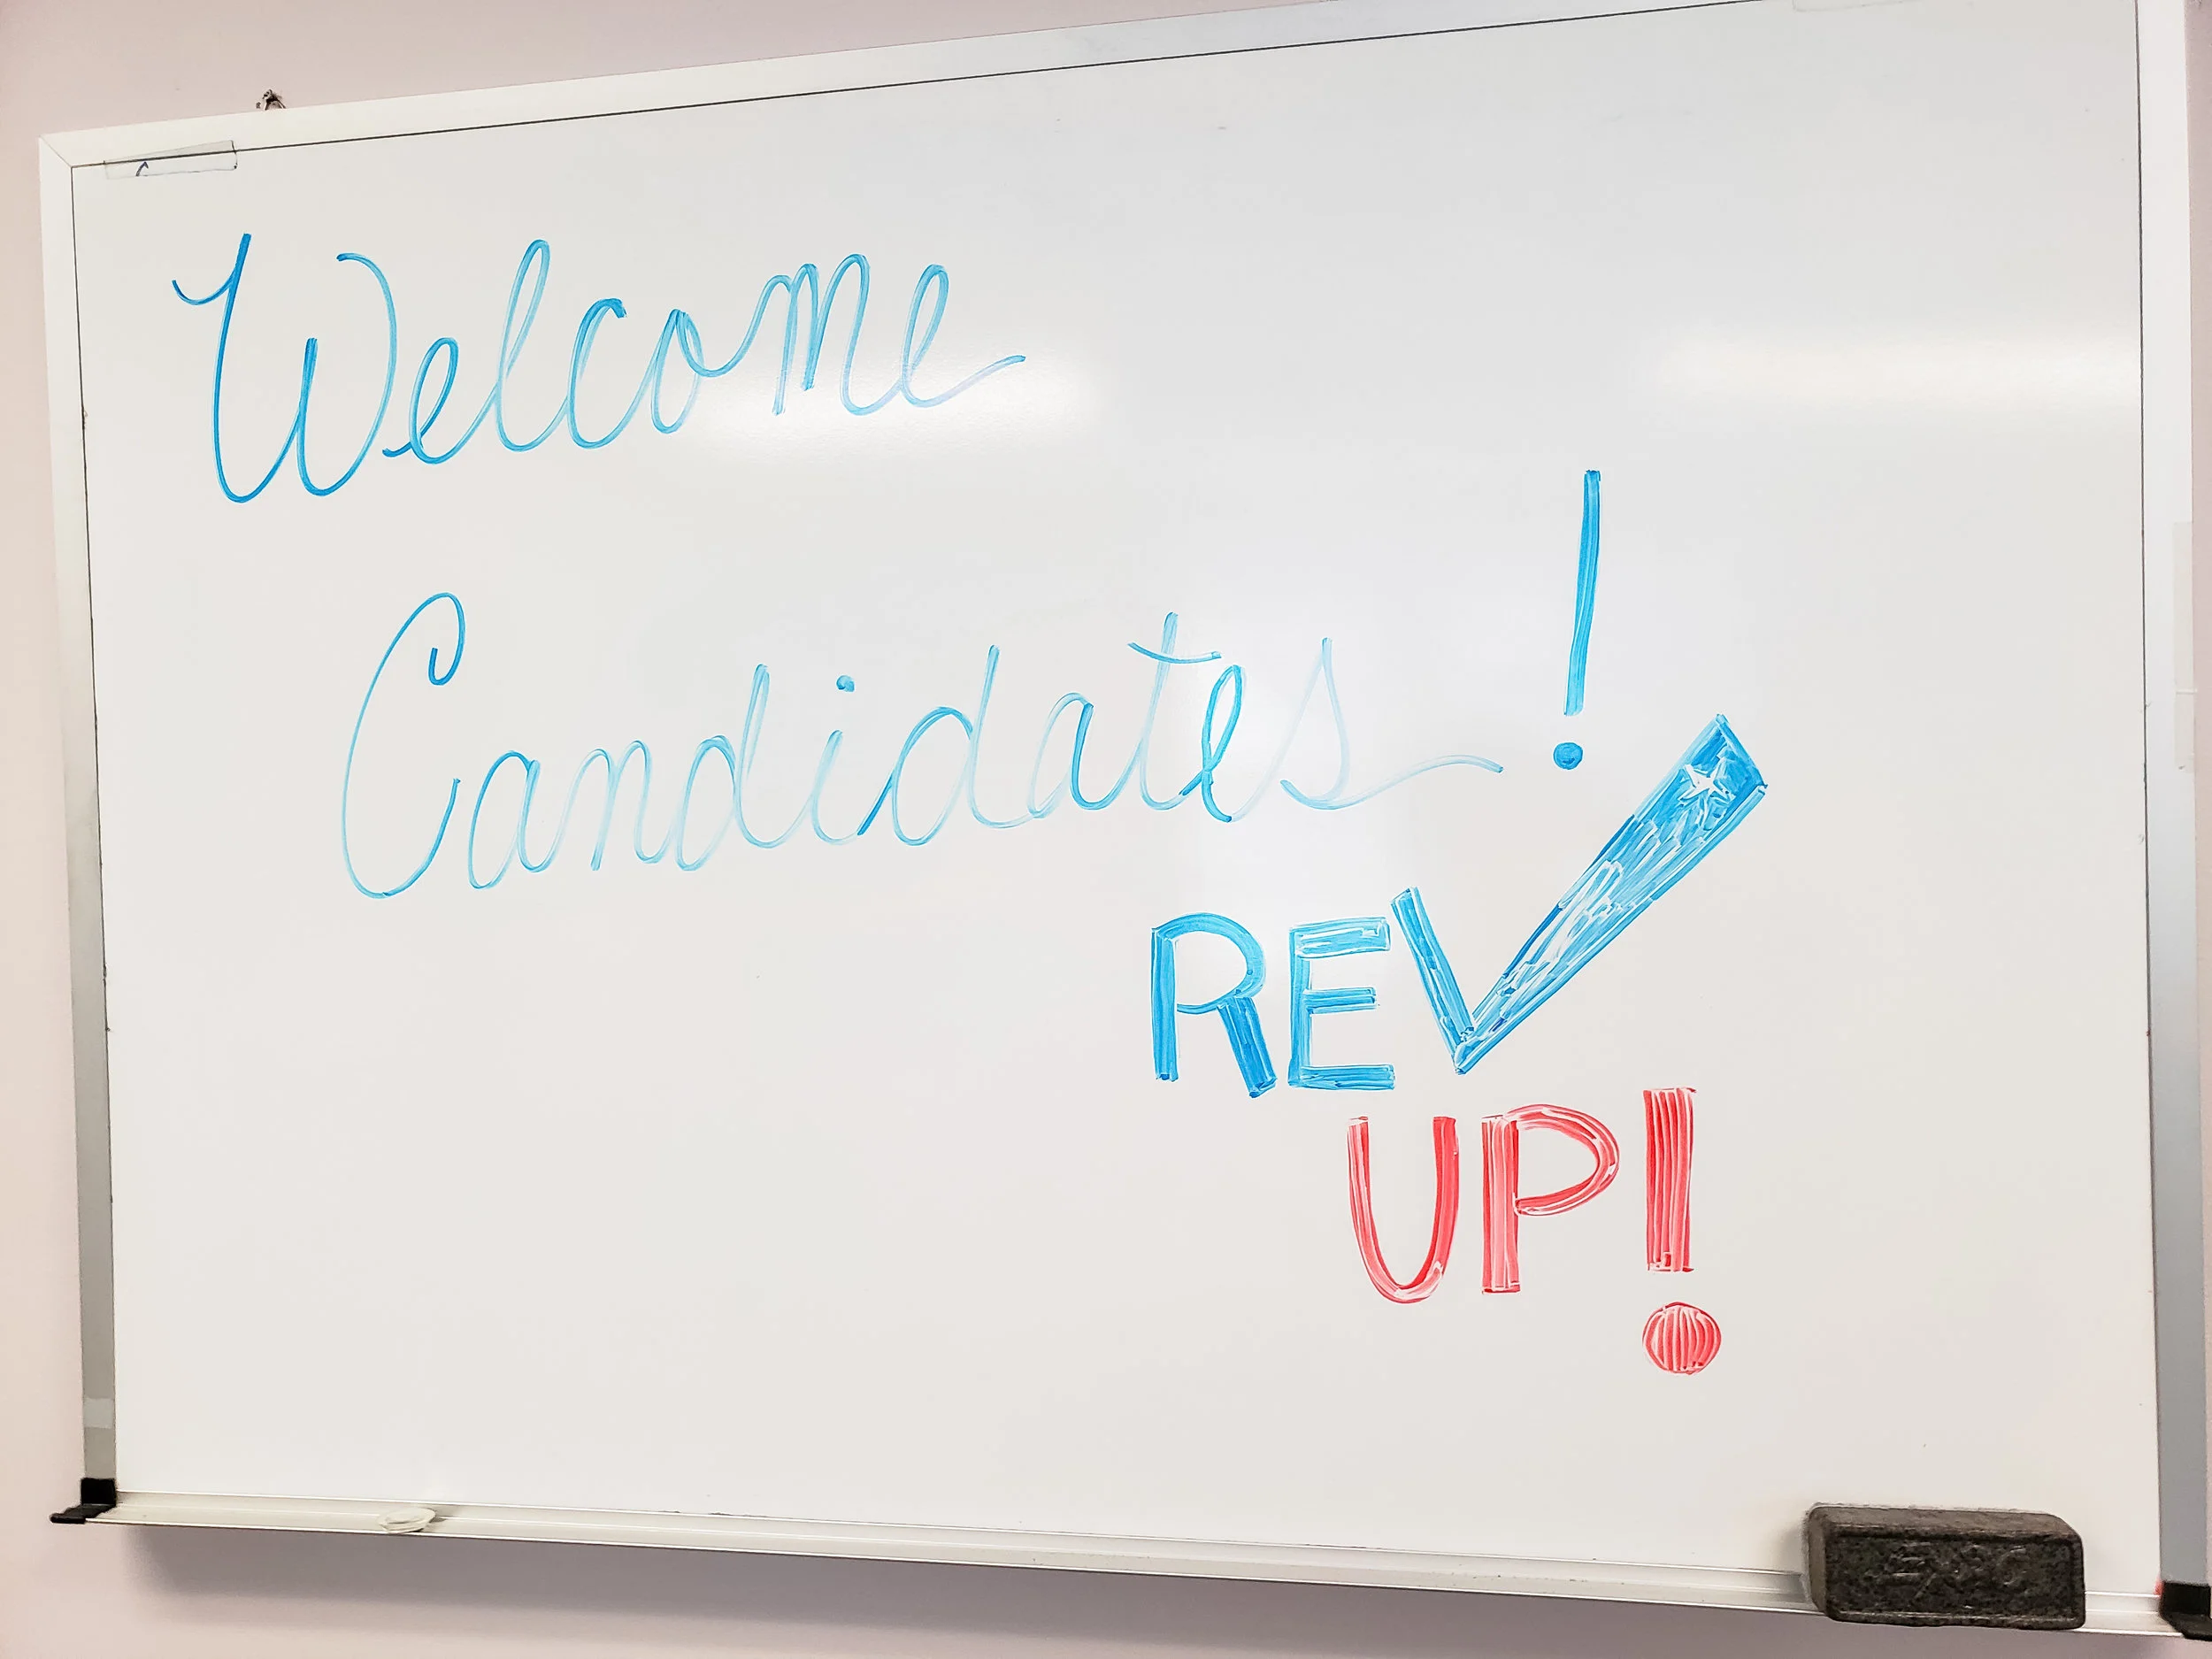 Welcome
Candidates!
REV
UP!